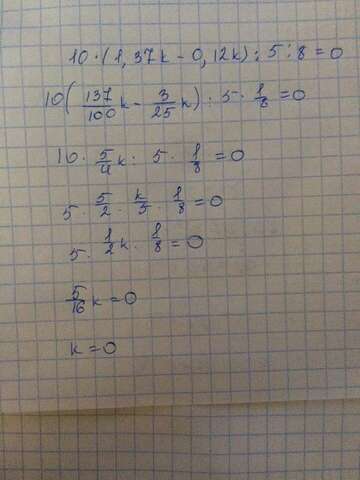 10·(1,37k - 0,12k):5:8=0
10(137/100 k - 3/25 k):5·1/8=0
10·5/4 k:5·1/8=0
5·5/2·k/5·1/8=0
5·1/2 k·1/8=0
5/16 k=0
k=0